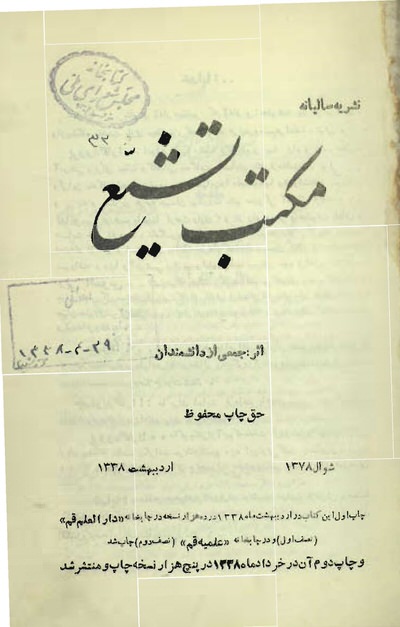 نشریه سالیانه
کتابخانه
مجلس شورای ملی
۳۳
مکتب تشیّع
۱۳۳۸-۴-۲۹
اثر: جمعی از دانشمندان
حق چاپ محفوظ
شوال ۱۳۷۸ اردیبهشت ۱۳۳۸
چاپ اول این کتاب در اردیبهشت ماه ۱۳۳۸ در ده هزار نسخه در چاپخانه «دارالعلم قم»
(نصف اول) و در چاپخانه «علمیه قم» (نصف دوم) چاپ شد
و چاپ دوم آن در خرداد ماه ۱۳۳۸ در پنج هزار نسخه چاپ و منتشر شد